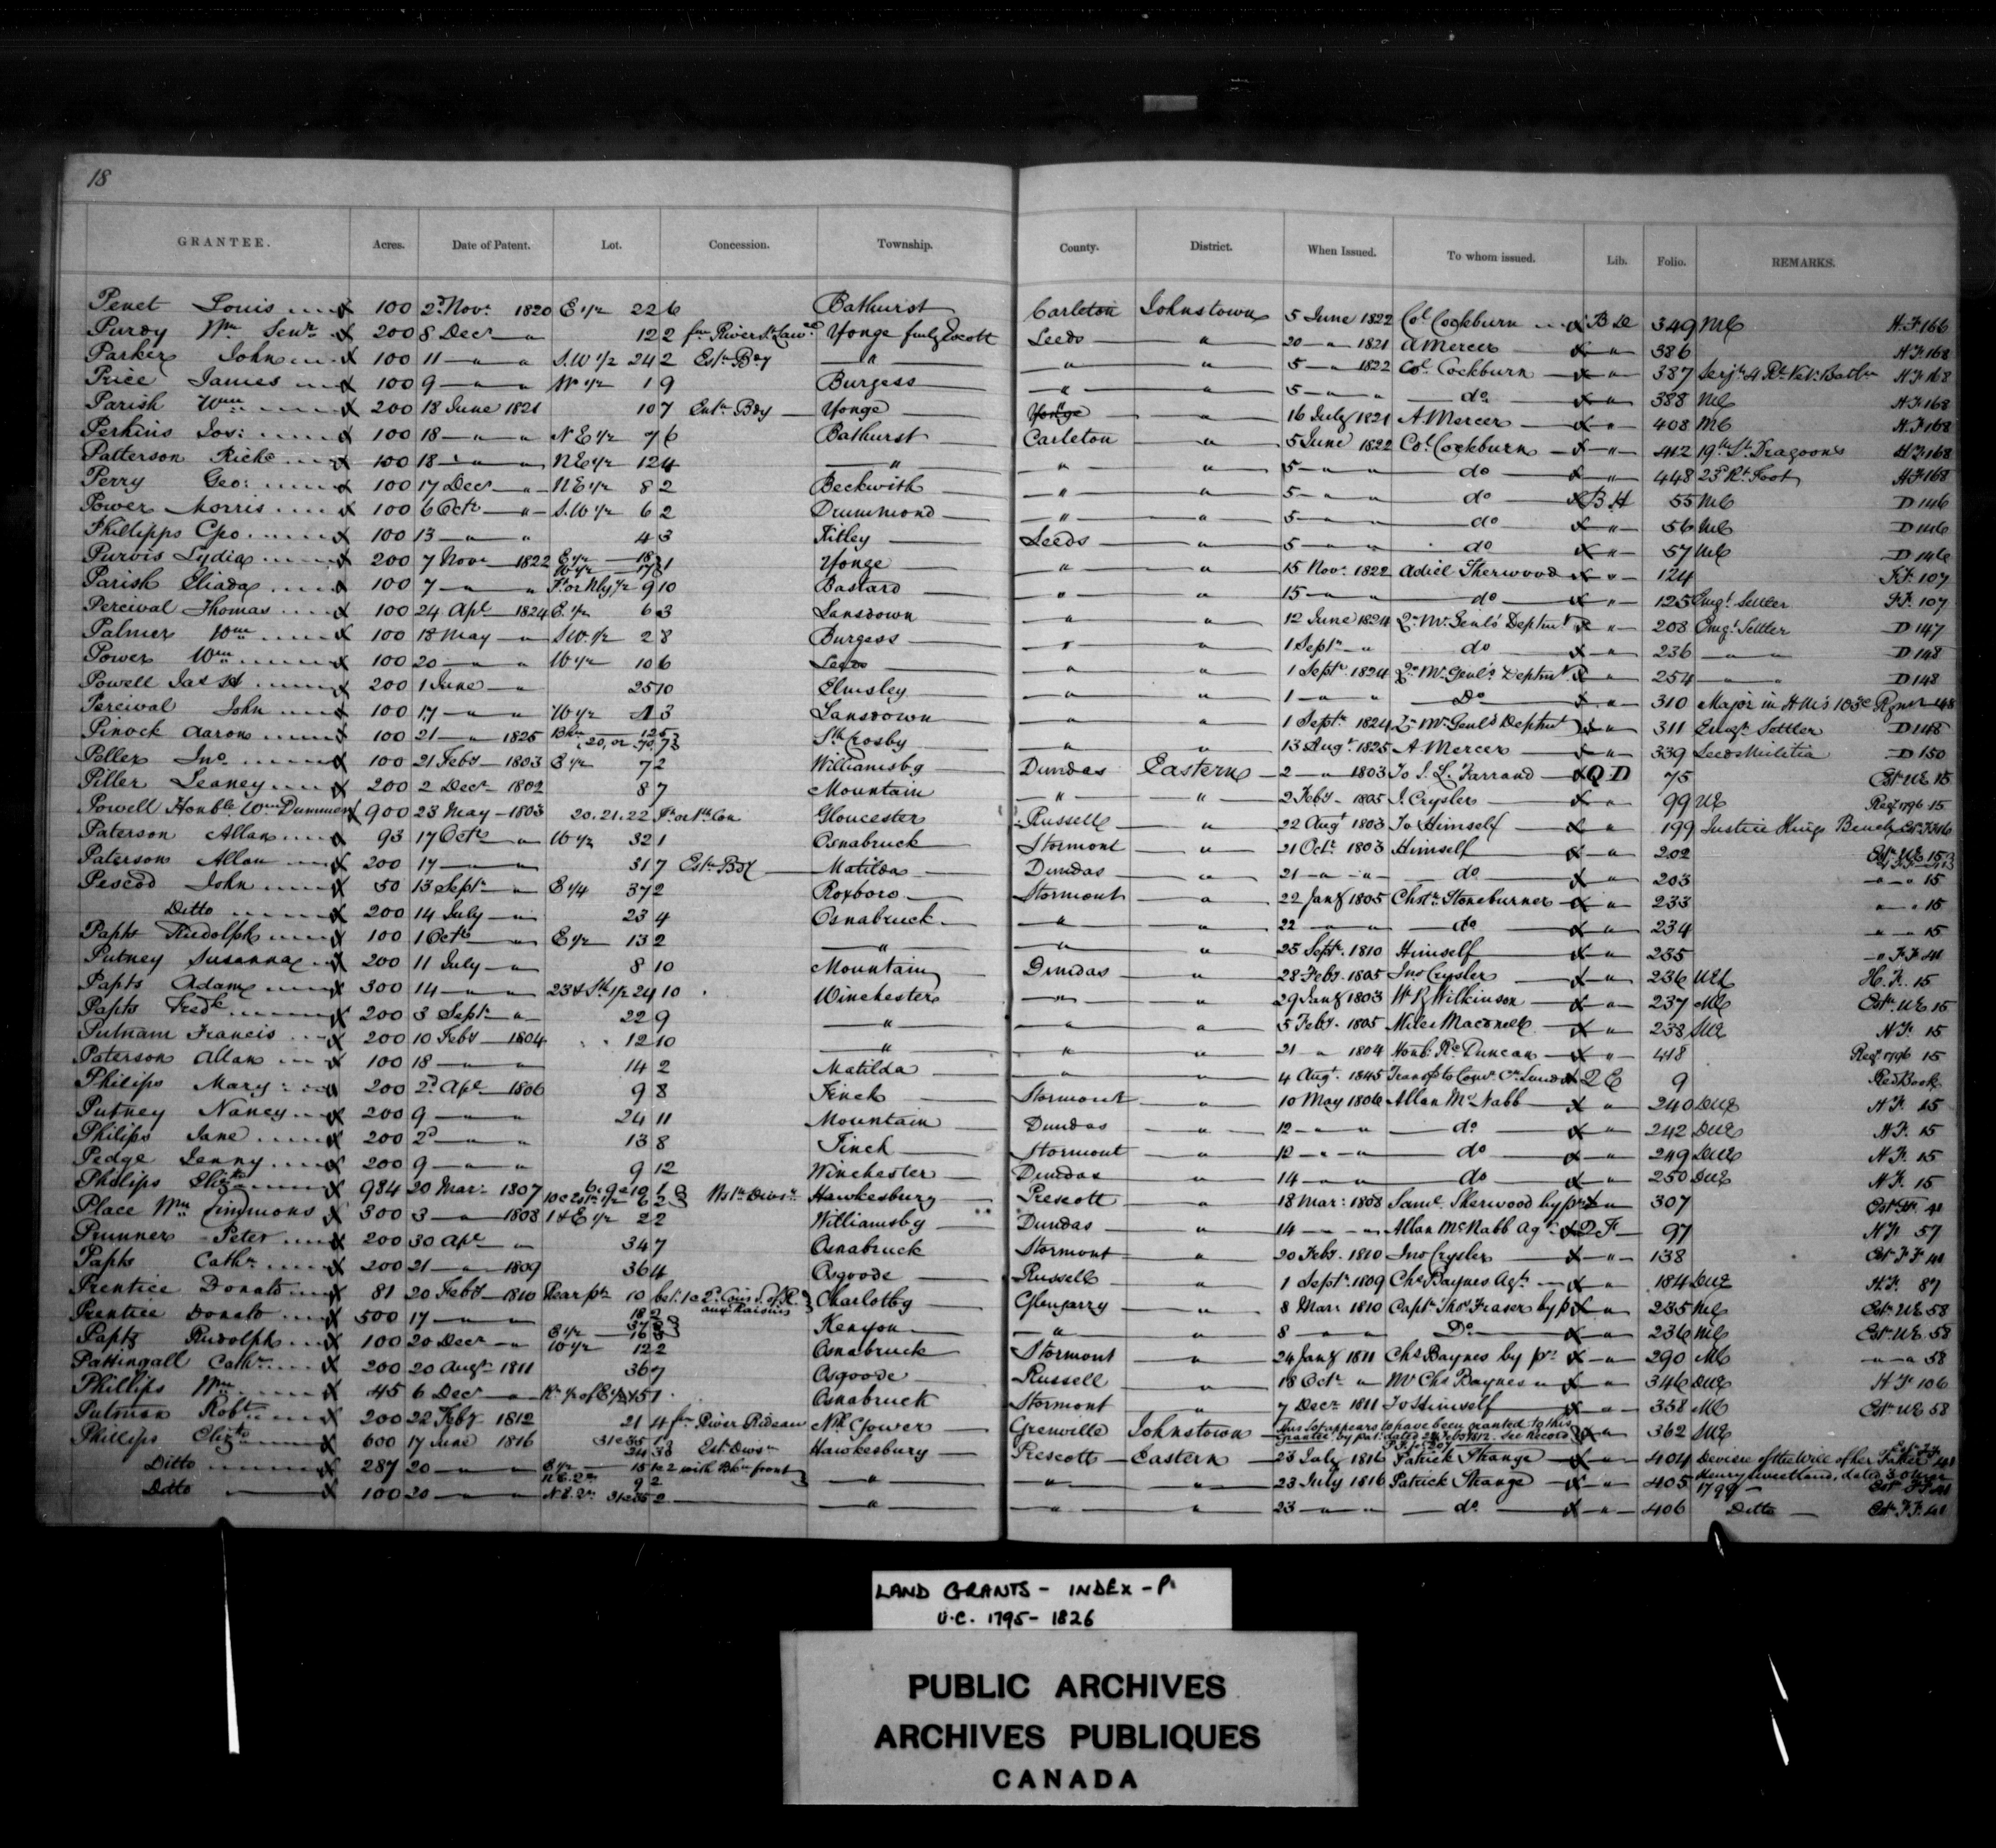 18
GRANTEE. Acres. Date of Patent. Lot. Concession. Township. County. District. When Issued. To whom issued. Lib. Folio. REMARKS.
Penet Louis 100 2d Nov. 1820 E 1/2 22 6 Bathurst Carleton Johnstown 5 June 1822 Col. Cockburn B D 349 MC H.F. 166
Purdy Wm Senr 200 8 Decr " 12 2 Yonge Leeds " 20 " 1821 A Mercer " 386 H.F. 168
Parker John 100 11 " " S.W 1/2 24 2 Estn Bdy " " " 5 " 1822 Col. Cockburn " 387 H.F. 168
Price James 100 9 " " 1/2 1 9 Burgess " " 5 " " do " 388 MC H.F. 168
Parish Wm 200 18 June 1821 10 7 Yonge " 16 July 1821 A. Mercer " 408 MC H.F. 168
Perkins Jos: 100 18 " " N E 1/2 7 6 Bathurst Carleton " 5 June 1822 Col. Cockburn " 412 19th Lt Dragoons H.F. 168
Patterson Richd 100 18 " " N E 1/2 12 4 " " " 5 " " do " 448 Foot H.F. 168
Perry Geo: 100 17 Decr " N E 1/2 8 2 Beckwith " " 5 " " do B H 55 MC D 146
Power Morris 100 6 Octr " S.W 1/2 6 2 Drummond " " 5 " " do " 56 MC D 146
Phillipps Geo 100 13 " " 4 3 Kitley Leeds " 5 " " do " 57 MC D 146
Purvis Lydia 200 7 Novr 1822 E 1/2 18 W 1/2 17 } 1 Yonge " " 15 Novr 1822 Adiel Sherwood " 124 F.F. 107
Parish Eliada 100 7 " " 9 10 Bastard " " 15 " " do " 125 Emigt Settler F.F. 107
Percival Thomas 100 24 Apl 1824 E. 1/2 6 3 Lansdown " " 12 June 1824 Qr Mr Genl's Deptmt " 208 Emigt Settler D 147
Palmer Wm 100 18 May " S.W. 1/2 2 8 Burgess " " 1 Septr " do " 236 " " D 148
Power Wm 100 20 " " W 1/2 10 6 Leeds " " 1 Septr 1824 Qr Mr Genl's Deptmt " 254 " D 148
Powell Jas H 200 1 June " 25 10 Elmsley " " 1 " " Do " 310 Major in H.M's 103d Regmt 148
Percival John 100 17 " " W 1/2 3 Lansdown " " 1 Septr 1824 Qr Mr Genl's Deptmt " 311 Emigt Settler D 148
Pinock Aaron 100 21 " 1825 7 Sth Crosby " " 13 Augt 1825 A Mercer " 339 Leeds Militia D 150
Poller Jno 100 21 Feby 1803 E 1/2 7 2 Williamsbg Dundas Eastern 2 " 1803 To S. L. Farrand Q D 75 Estn UE 15
Piller Leaney 200 2 Decr 1802 8 7 Mountain " " 2 Feby 1805 J. Crysler " 99 UE Regr 1796 15
Powell Honble Wm Dummer 900 23 May 1803 20.21.22 Gloucester Russell " 22 Augt 1803 To Himself " 199 Justice Kings Bench
Paterson Allan 93 17 Octr " W 1/2 32 1 Osnabruck Stormont " 21 Octr 1803 Himself " 202 Estn UE 15
Paterson Allan 200 17 " " 31 7 Estn Bdy Matilda Dundas " 21 " " do " 203 " " 15
Pescod John 50 13 Septr " E 1/4 37 2 Roxboro Stormont " 22 Jany 1805 Chstr Stoneburner " 233 " " 15
Ditto 200 14 July " 23 4 Osnabruck " " 22 " " do " 234 " " 15
Papts Rudolph 100 1 Octr " E 1/2 13 2 " " " 25 Septr 1810 Himself " 235 " F.F. 41
Putney Susanna 200 11 July " 8 10 Mountain Dundas " 28 Feby 1805 Jno Crysler " 236 UEL H.F. 15
Papts Adam 300 14 " " 23 & Sth 1/2 24 10 Winchester " " 29 Jany 1803 W R Wilkinson " 237 MC Estn UE 15
Papts Fredk 200 3 Septr " 22 9 " " " 5 Feby 1805 Miles Macdonell " 238 UE H.F. 15
Putnam Francis 200 10 Feby 1804 12 10 " " " 21 " 1804 Honb. Rd Duncan " 418 Regr 1796 15
Paterson Allan 100 18 " " 14 2 Matilda " " 4 Augt 1845 Q E 9 Red Book
Philips Mary 200 2d Apl 1806 9 8 Finch Stormont " 10 May 1806 Allan McNabb " 240 DUE H.F. 15
Putney Nancy 200 9 " " 24 11 Mountain Dundas " 12 " " do " 242 DUE H.F. 15
Philips Jane 200 2d " " 13 8 Finch Stormont " 12 " " do " 249 DUE H.F. 15
Pedge Jenny 200 9 " " 9 12 Winchester Dundas " 14 " " do " 250 DUE H.F. 15
Philips Elizth 984 20 Mar: 1807 Wstn Divsn Hawkesbury Prescott " 18 Mar: 1808 Saml Sherwood by pr " 307
Place Wm Simmons 300 3 " 1808 1 & E 1/2 2 2 Williamsbg Dundas " 14 " " Allan McNabb Agt Q F 97 H.F. 57
Prunner Peter 200 30 Apl " 34 7 Osnabruck Stormont " 20 Feby 1810 Jno Crysler " 138 Estn F.F. 41
Papts Cathn 200 21 " 1809 36 4 Osgoode Russell " 1 Septr 1809 Chs Baynes Agt " 184 DUE H.F. 87
Prentice Donato 81 20 Feby 1810 Rear pt 10 Charlotbg Glengarry " 8 Mar: 1810 Captn Thos Fraser by pr " 235 MC Estn UE 58
Prentice Donato 500 17 " " Kenyon " " 8 " " Do " 236 MC Estn UE 58
Papts Rudolph 100 20 Decr " W 1/2 12 2 Osnabruck Stormont " 24 Jany 1811 Chs Baynes by pr " 290 MC " " 58
Pattingall Cathn 200 20 Augt 1811 36 7 Osgoode Russell " 18 Octr " Mr Chs Baynes " " 346 DUE H.F. 106
Phillips Wm 45 6 Decr " Osnabruck Stormont " 7 Decr 1811 To Himself " 358 MC Estn UE 58
Putman Robt 200 22 Feby 1812 21 4 fm River Rideau Nth Gower Grenville Johnstown This Lot appears to have been granted to this Grantee by pat. dated 22 Feby 1812. See Record " 362 UE
Phillips Elizth 600 17 June 1816 Estn Divsn Hawkesbury Prescott Eastern 23 July 1816 Patrick Strange " 404 Devisee of the Will of her Father
Ditto 287 20 " " with Bkn front " " " 23 July 1816 Patrick Strange " 405 1799
Ditto 100 20 " " 2 " " " 23 " " do " 406 Ditto Estn F.F. 41
LAND GRANTS - INDEX - P.
U.C. 1795 - 1826
PUBLIC ARCHIVES
ARCHIVES PUBLIQUES
CANADA